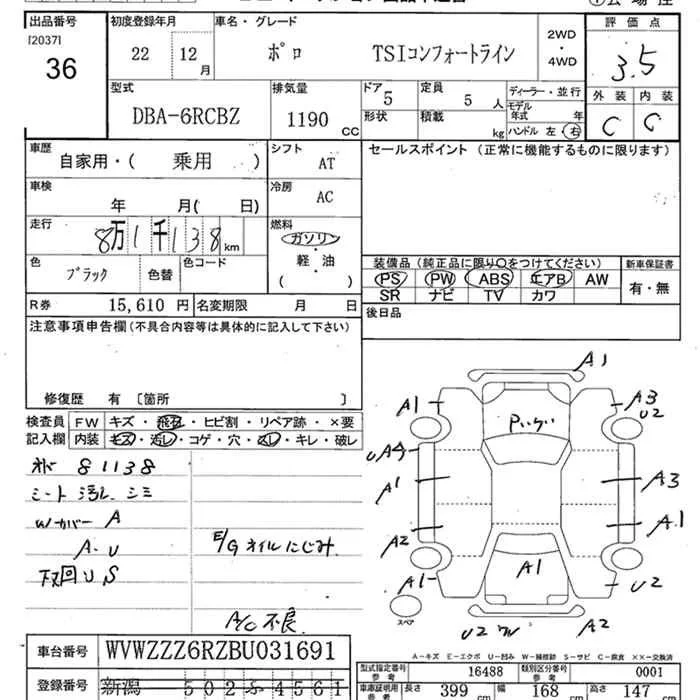 出品番号 初度登録年月 車名・グレード 評価点
[2037]
36 22 12月 ポロ TSIコンフォートライン 2WD・4WD 3.5
型式 排気量 ドア 定員 ディーラー・並行 外装 内装
DBA-6RCBZ 1190 CC 5 5人 モデル年式 年
形状 積載 kg ハンドル 左・右 C C
車歴 自家用・( 乗用 ) シフト AT セールスポイント (正常に機能するものに限ります)
車検 年 月( 日) 冷房 AC
走行 8万1千138km 燃料 ガソリン
軽・油
( )
色 ブラック 色替 色コード
装備品 (純正品に限り○をつけてください) 新車保証書
PS PW ABS エアB AW 有・無
SR ナビ TV カワ
R券 15,610 円 名変期限 月 日 後日品
注意事項申告欄 (不具合内容等は具体的に記入して下さい)
修復歴 有 [箇所 ]
検査員 FW キズ・飛石・ヒビ割・リペア跡・×要
記入欄 内装 キズ・汚レ・コゲ・穴・スレ・キレ・破レ
81138
シート 汚レ シミ
Wカバー A
A・U
下回 U S
E/G オイルにじみ
A/C 不良
A1
A1 A3
U2
UA4
A1 A3
A2 A1
A1 A1 U2
U2 A2
スペア
A-キズ E-エクボ U-凹み W-補修跡 S-サビ C-腐食 ××-交換済
車台番号 WVWZZZ6RZBU031691
型式指定番号 参考 16488 類別区分番号 参考 0001
登録番号 新潟 502ふ4561
車庫証明用 参考 長さ 399 cm 幅 168 cm 高さ 147 cm